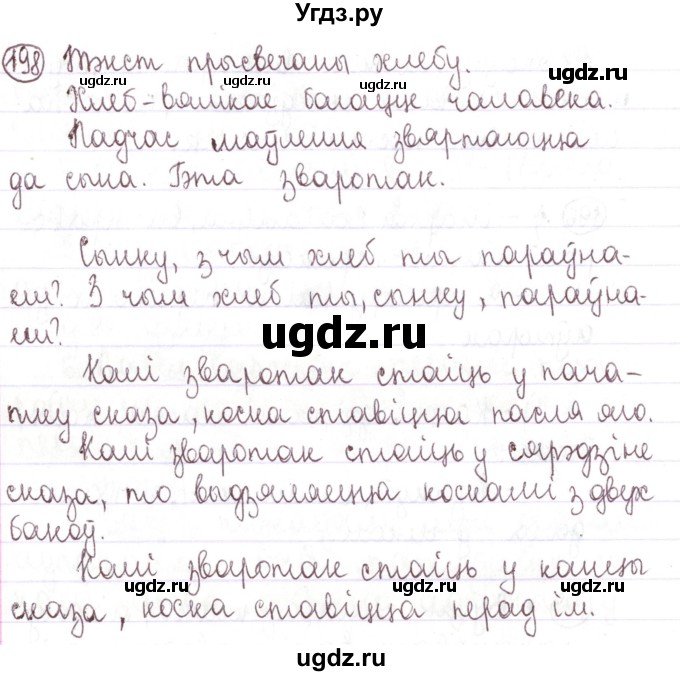 Угдз.ру
198 Тэкст прысвечаны хлебу.
ugdz.ru ugdz.ru
Хлеб - вялікае багацце чалавека.
Падчас маўлення звяртаюцца
да сына. Гэта зваротак.
ugdz.ru ugdz.ru
Сынку, з чым хлеб ты параўна-
еш? З чым хлеб ты, сынку, параўна-
еш?
ugdz.ru
Калі зваротак стаіць у пача-
тку сказа, коска ставіцца пасля яго.
ugdz.ru ugdz.ru
Калі зваротак стаіць у сярэдзіне
сказа, то выдзяляецца коскамі з двух
бакоў.
ugdz.ru ugdz.ru
Калі зваротак стаіць у канцы
сказа, коска ставіцца перад ім.
ugdz.ru